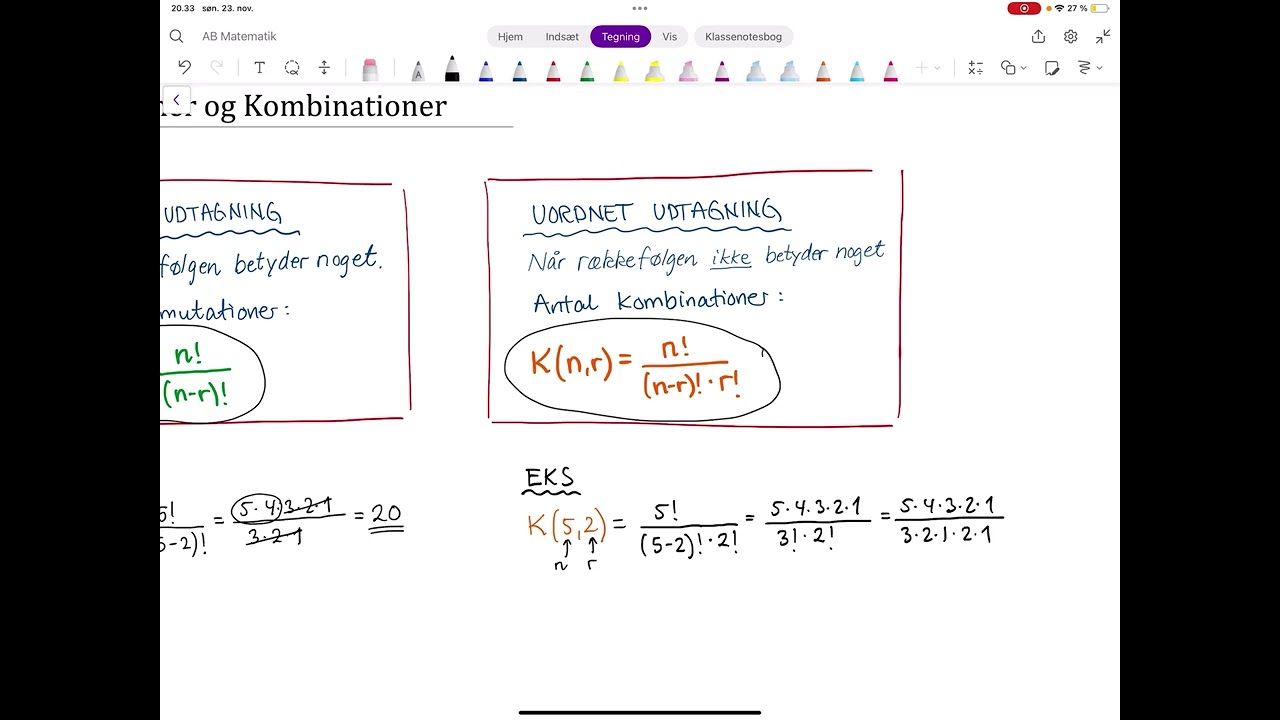 20.33 søn. 23. nov.
27 %
AB Matematik
Hjem Indsæt Tegning Vis Klassenotesbog
ner og Kombinationer
UDTAGNING
følgen betyder noget.
mutationer:
n!
(n-r)!
UORDNET UDTAGNING
Når rækkefølgen ikke betyder noget
Antal kombinationer:
K(n,r) = n! / (n-r)! · r!
5! / 5-2)! = 5·4·3·2·1 / 3·2·1 = 20
EKS
K(5,2) = 5! / (5-2)! · 2! = 5·4·3·2·1 / 3! · 2! = 5·4·3·2·1 / 3·2·1·2·1
n r